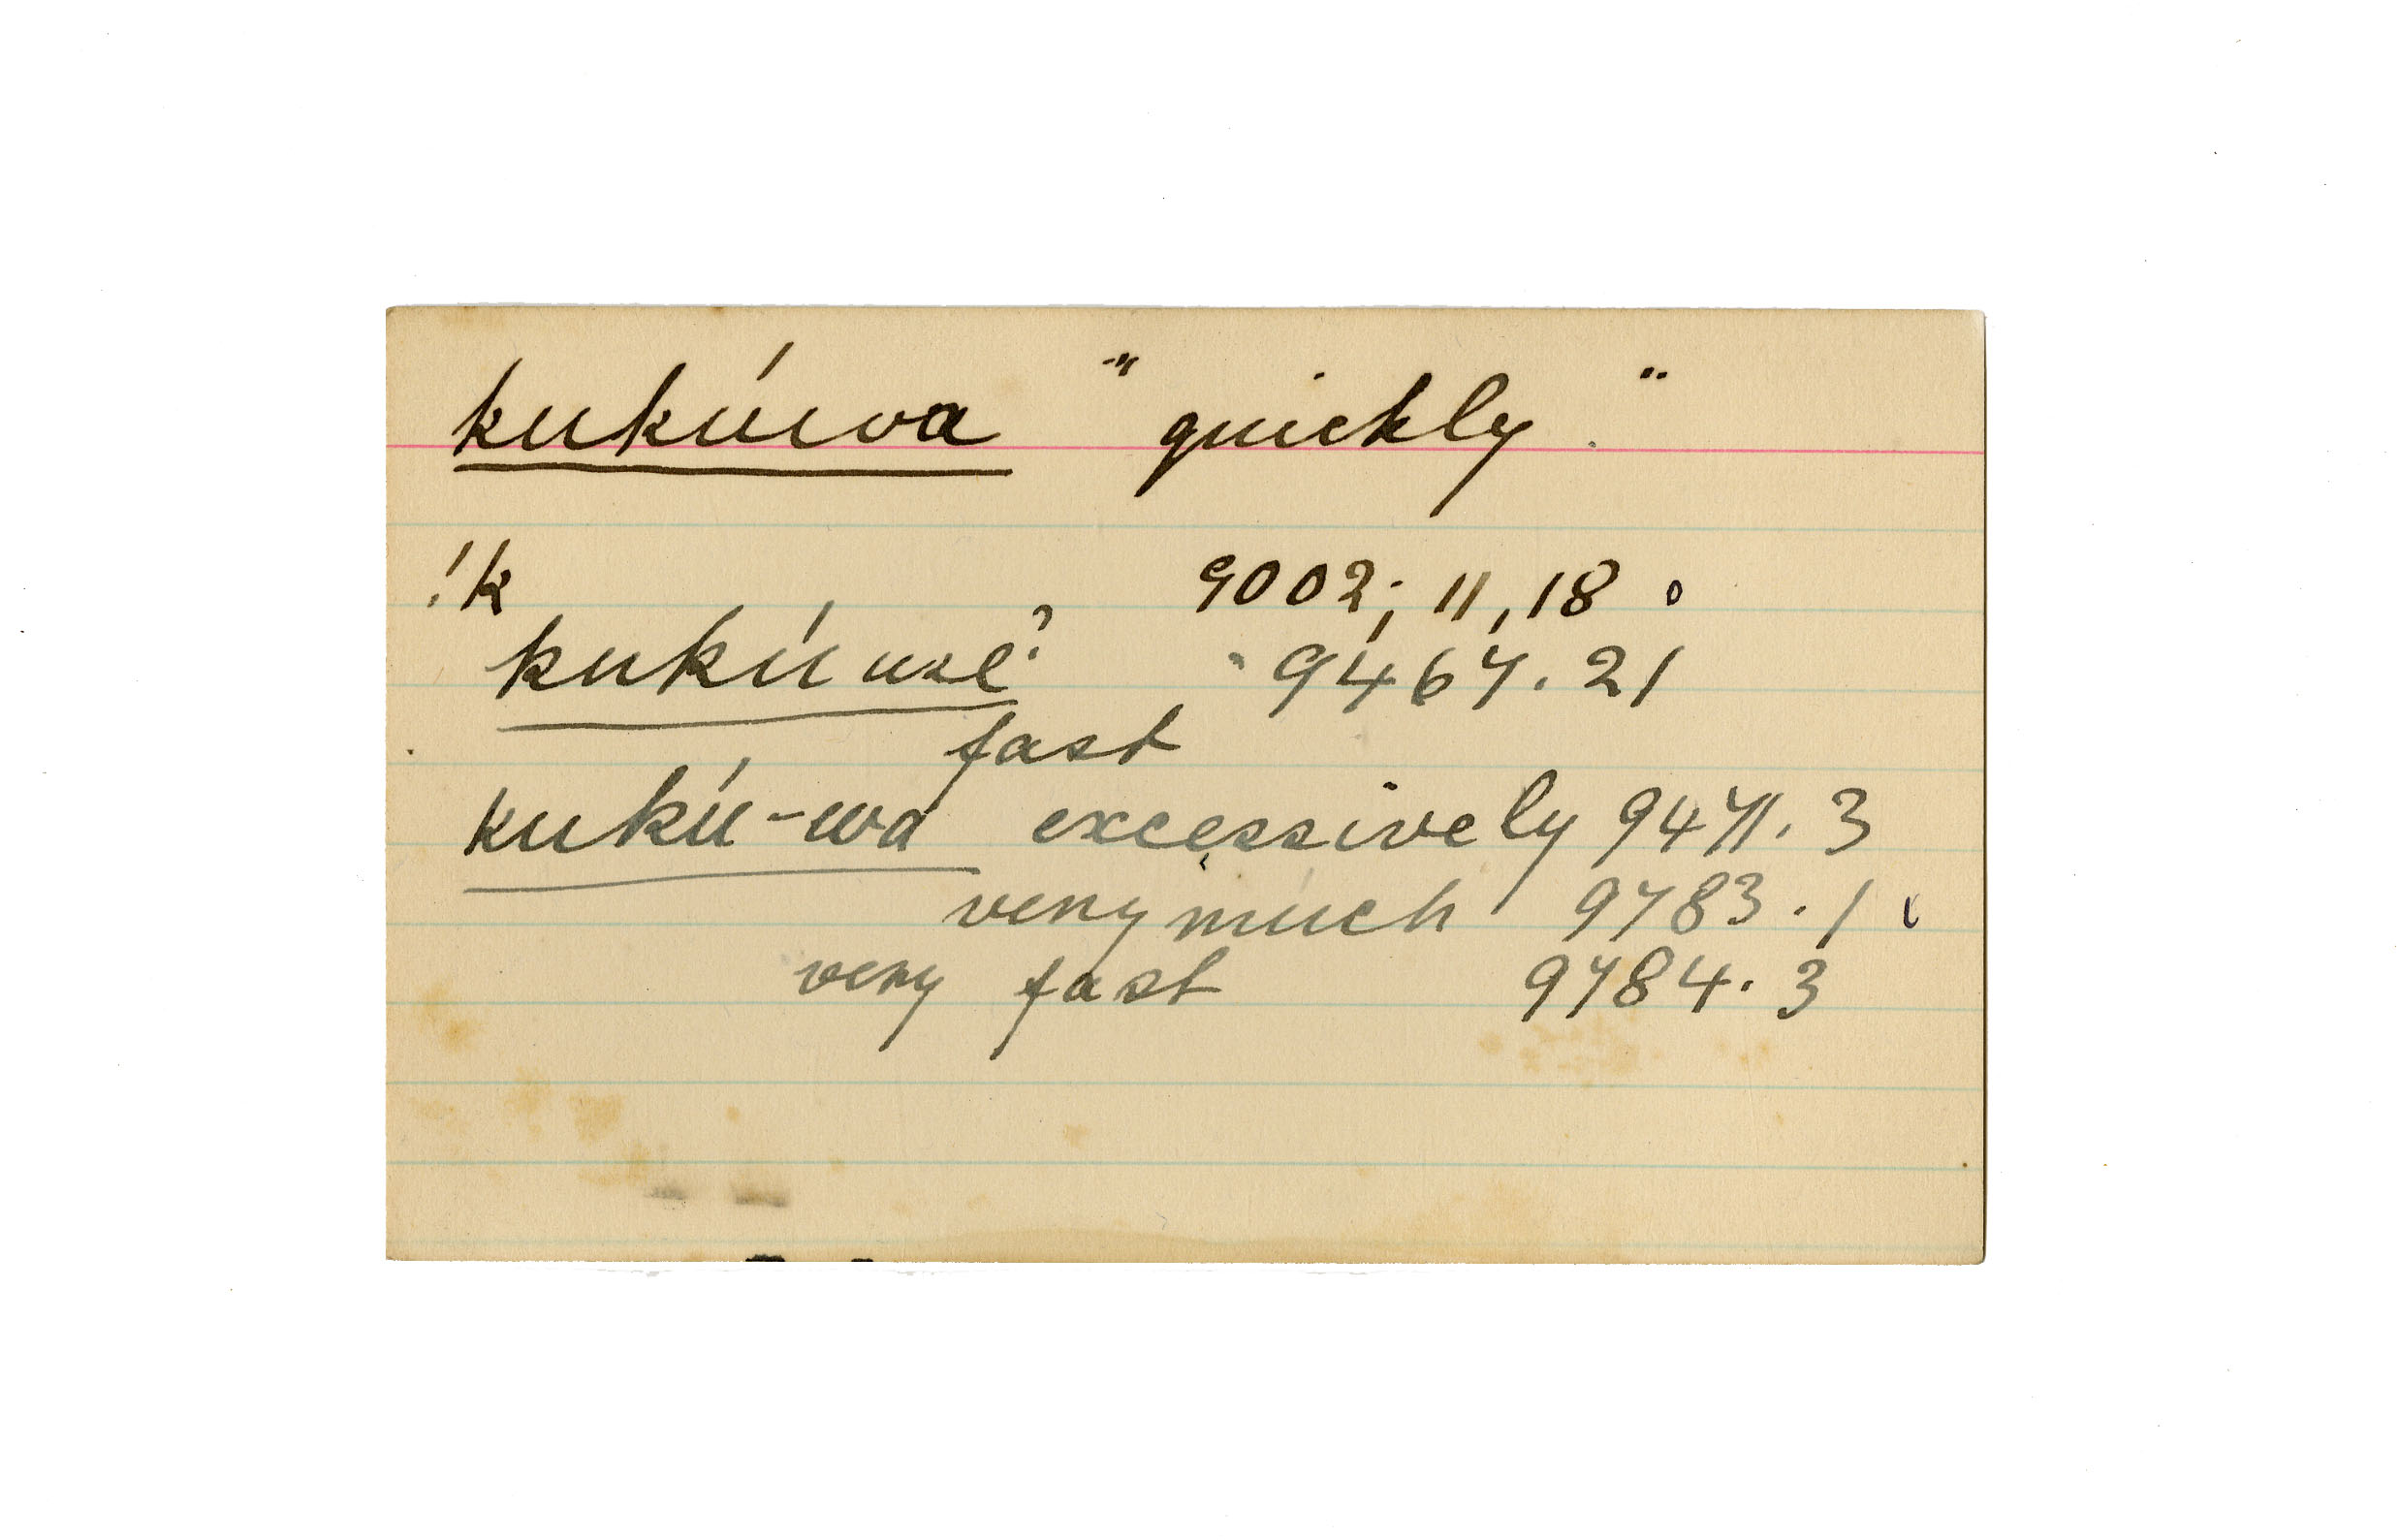 kukúwa "quickly."
!k 9002; 11, 18 o
kukúusé? 9467.21
fast
kukú-wa excessively 9471.3
very much 9783.1
very fast 9784.3